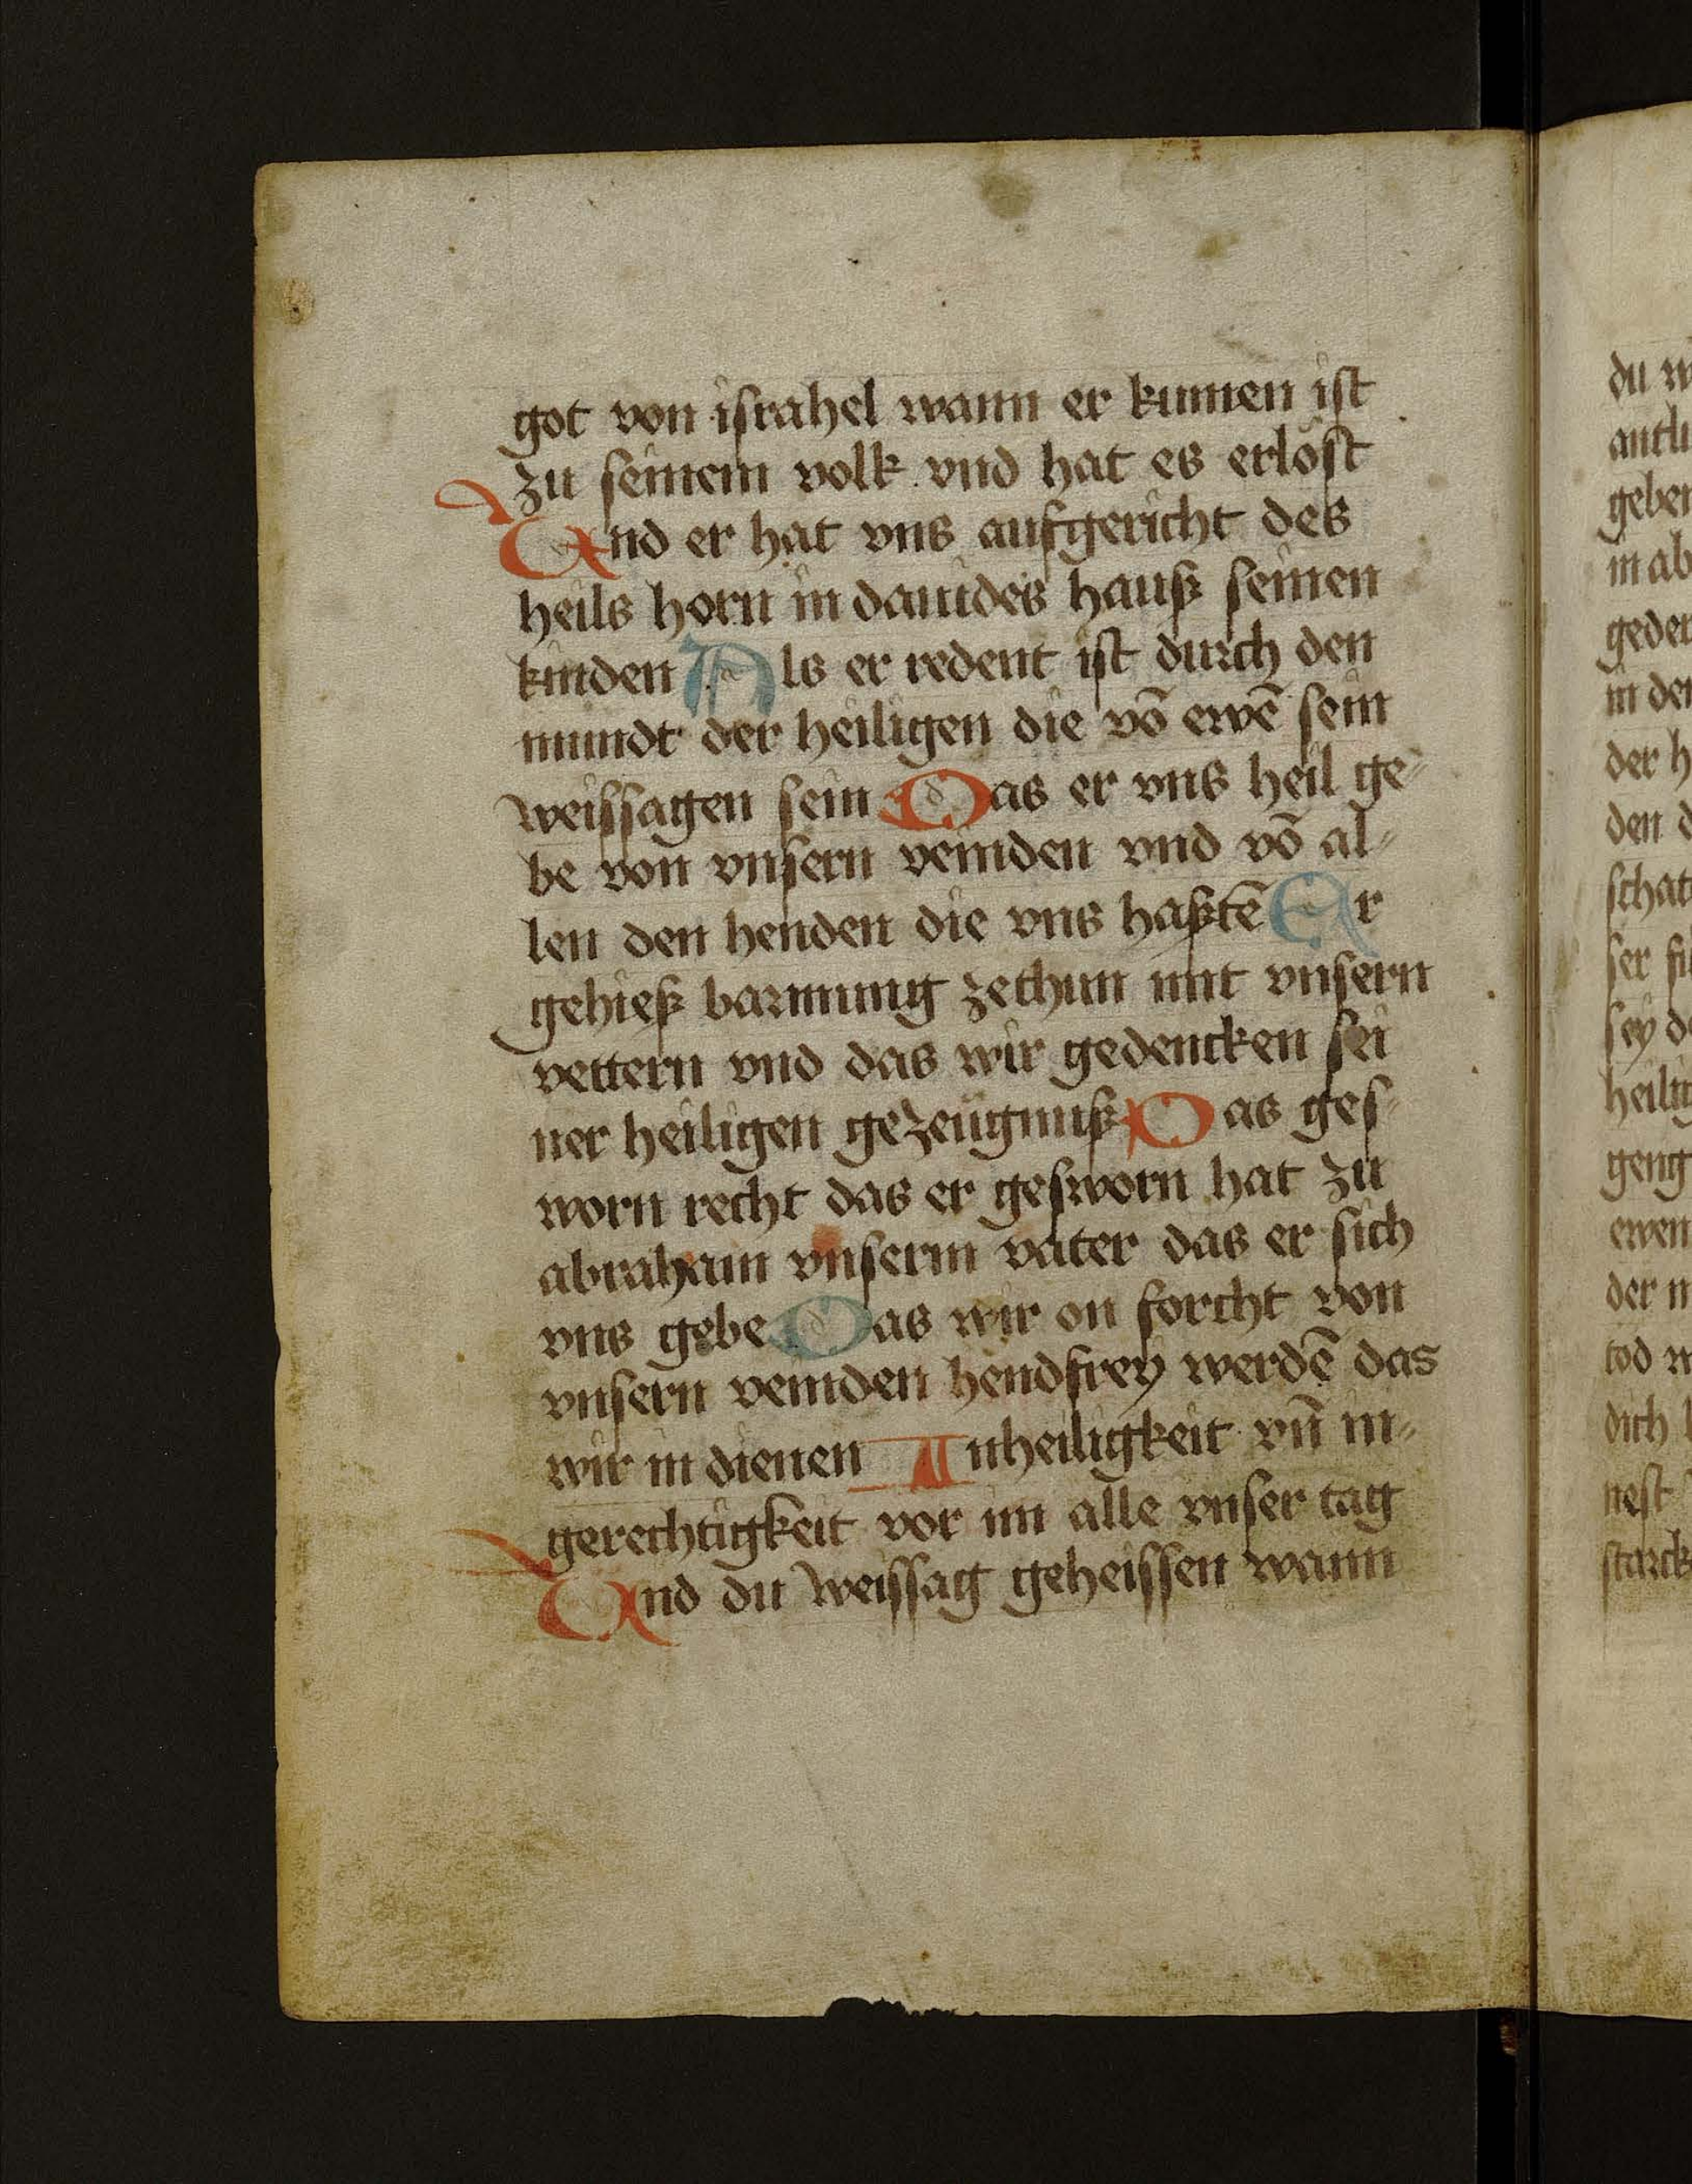 got von iſrahel wann er kumen iſt
zu ſeinem volk vnd hat es erlöſt
Vnd er hat vns aufgericht des
heils horn in dauides hauſz ſeinen
kinden Als er redent iſt durch den
mundt der heiligen die vō ewē ſein
weiſſagen ſein Das er vns heil ge-
be von vnſern veinden vnd vō al-
len den henden die vns haſztē Er
gehieſz barmung zethun mit vnſern
vettern vnd das wir gedencken ſei
ner heiligen gezeügnuſz Das geſ-
worn recht das er geſworn hat zu
abraham vnſerm vater das er ſich
vns gebe Das wir on forcht von
vnſern veinden hendfrey werdē das
wir in dienen Inheiligkeit vn̄ in-
gerechtigkeit vor im alle vnſer tag
Vnd du weiſſag geheiſſen wann
du w
antli
geben
in ab
geden
in der
der h
den d
ſchat
ſer fü
ſey de
heilig
geng
ewen
der m
tod w
dich l
neſt
ſtarck